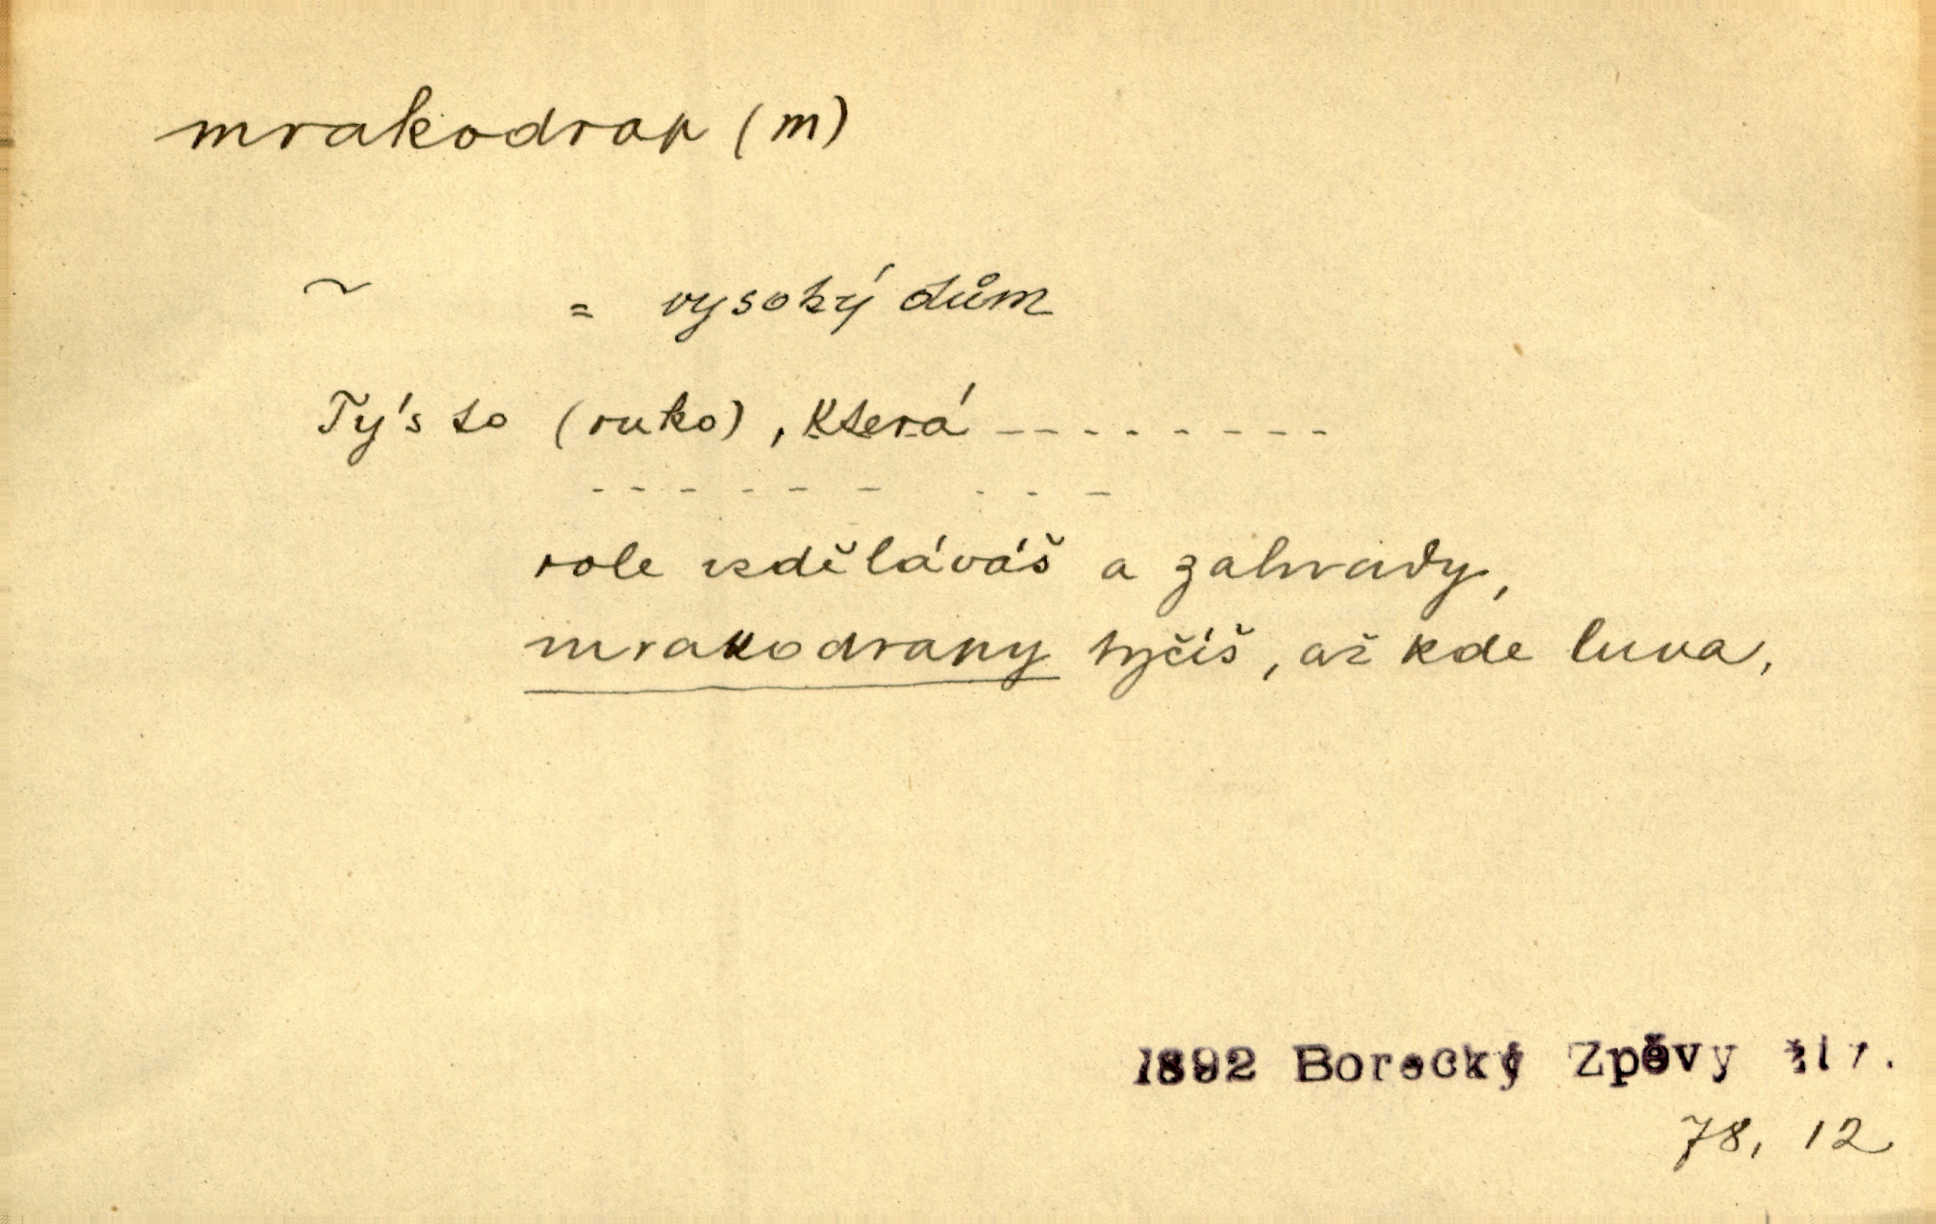 mrakodrap (m)
~ = vysoký dům
Ty's to (ruko), která - - - - - - - -
- - - - - - - - -
role vzděláváš a zahrady,
mrakodrapy tyčíš, až kde luna,
1892 Borecký Zpěvy
78, 12